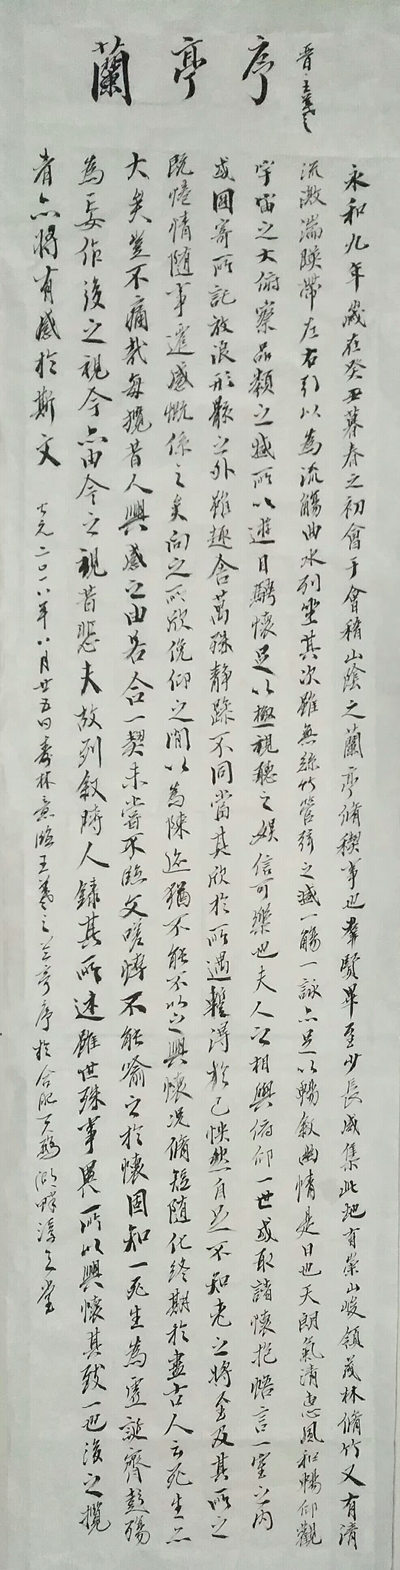 蘭亭序
晉·王羲之
永和九年歲在癸丑暮春之初會于會稽山陰之蘭亭脩稧事也羣賢畢至少長咸集此地有崇山峻領茂林脩竹又有清
流激湍暎帶左右引以為流觴曲水列坐其次雖無絲竹管弦之盛一觴一詠亦足以暢叙幽情是日也天朗氣清惠風和暢仰觀
宇宙之大俯察品類之盛所以遊目騁懷足以極視聽之娛信可樂也夫人之相與俯仰一世或取諸懷抱悟言一室之內
或因寄所託放浪形骸之外雖趣舍萬殊静躁不同當其欣於所遇蹔得於己怏然自足不知老之將至及其所之
既惓情隨事遷感慨係之矣向之所欣俛仰之間以為陳迹猶不能不以之興懷況脩短隨化終期於盡古人云死生亦
大矣豈不痛哉每攬昔人興感之由若合一契未嘗不臨文嗟悼不能喻之於懷固知一死生為虛誕齊彭殤
為妄作後之視今亦由今之視昔悲夫故列叙時人錄其所述雖世殊事異所以興懷其致一也後之攬
者亦將有感於斯文
公元二〇一八年八月廿五日壽林意臨王羲之兰亭序於合肥天鵝湖畔